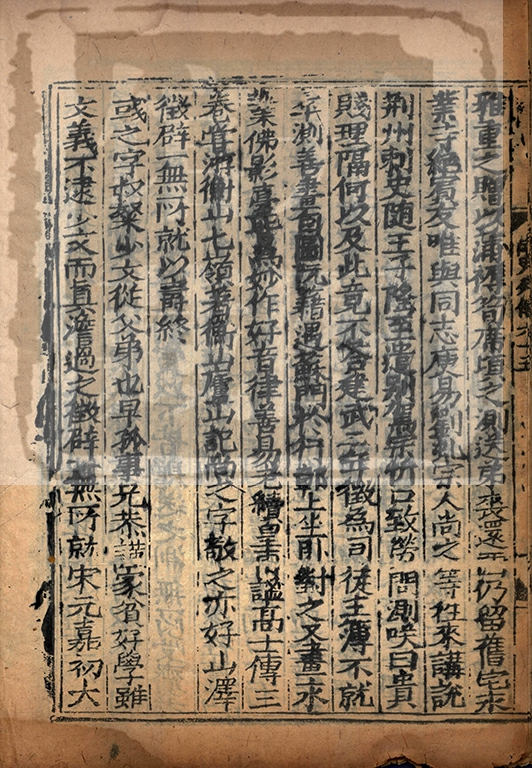 雅重之贈以蒲褥筍席頃之測送弟喪還西仍留舊宅永
業寺絕賓友唯與同志庾易劉虬宗人尚之等往來講說
荆州刺史随王子隆至遣别駕宗忻口致勞問測咲曰貴
賤理隔何以及此竟不答建武二年徵為司徒主薄不就
卒測善畫自圖阮籍遇蘇門於行鄣上坐前對之又畫永
業佛影䑓皆為妙作好音律善易老續皇甫謐高士傳三
卷嘗游衡山七嶺著衡山廬山記尚之字敬之亦好山澤
徵辟一無所就以壽終
彧之字叔粲少文從父弟也早孤事兄恭謹家貧好學雖
文義不逮少文而真澹過之徵辟一無所就宋元嘉初大